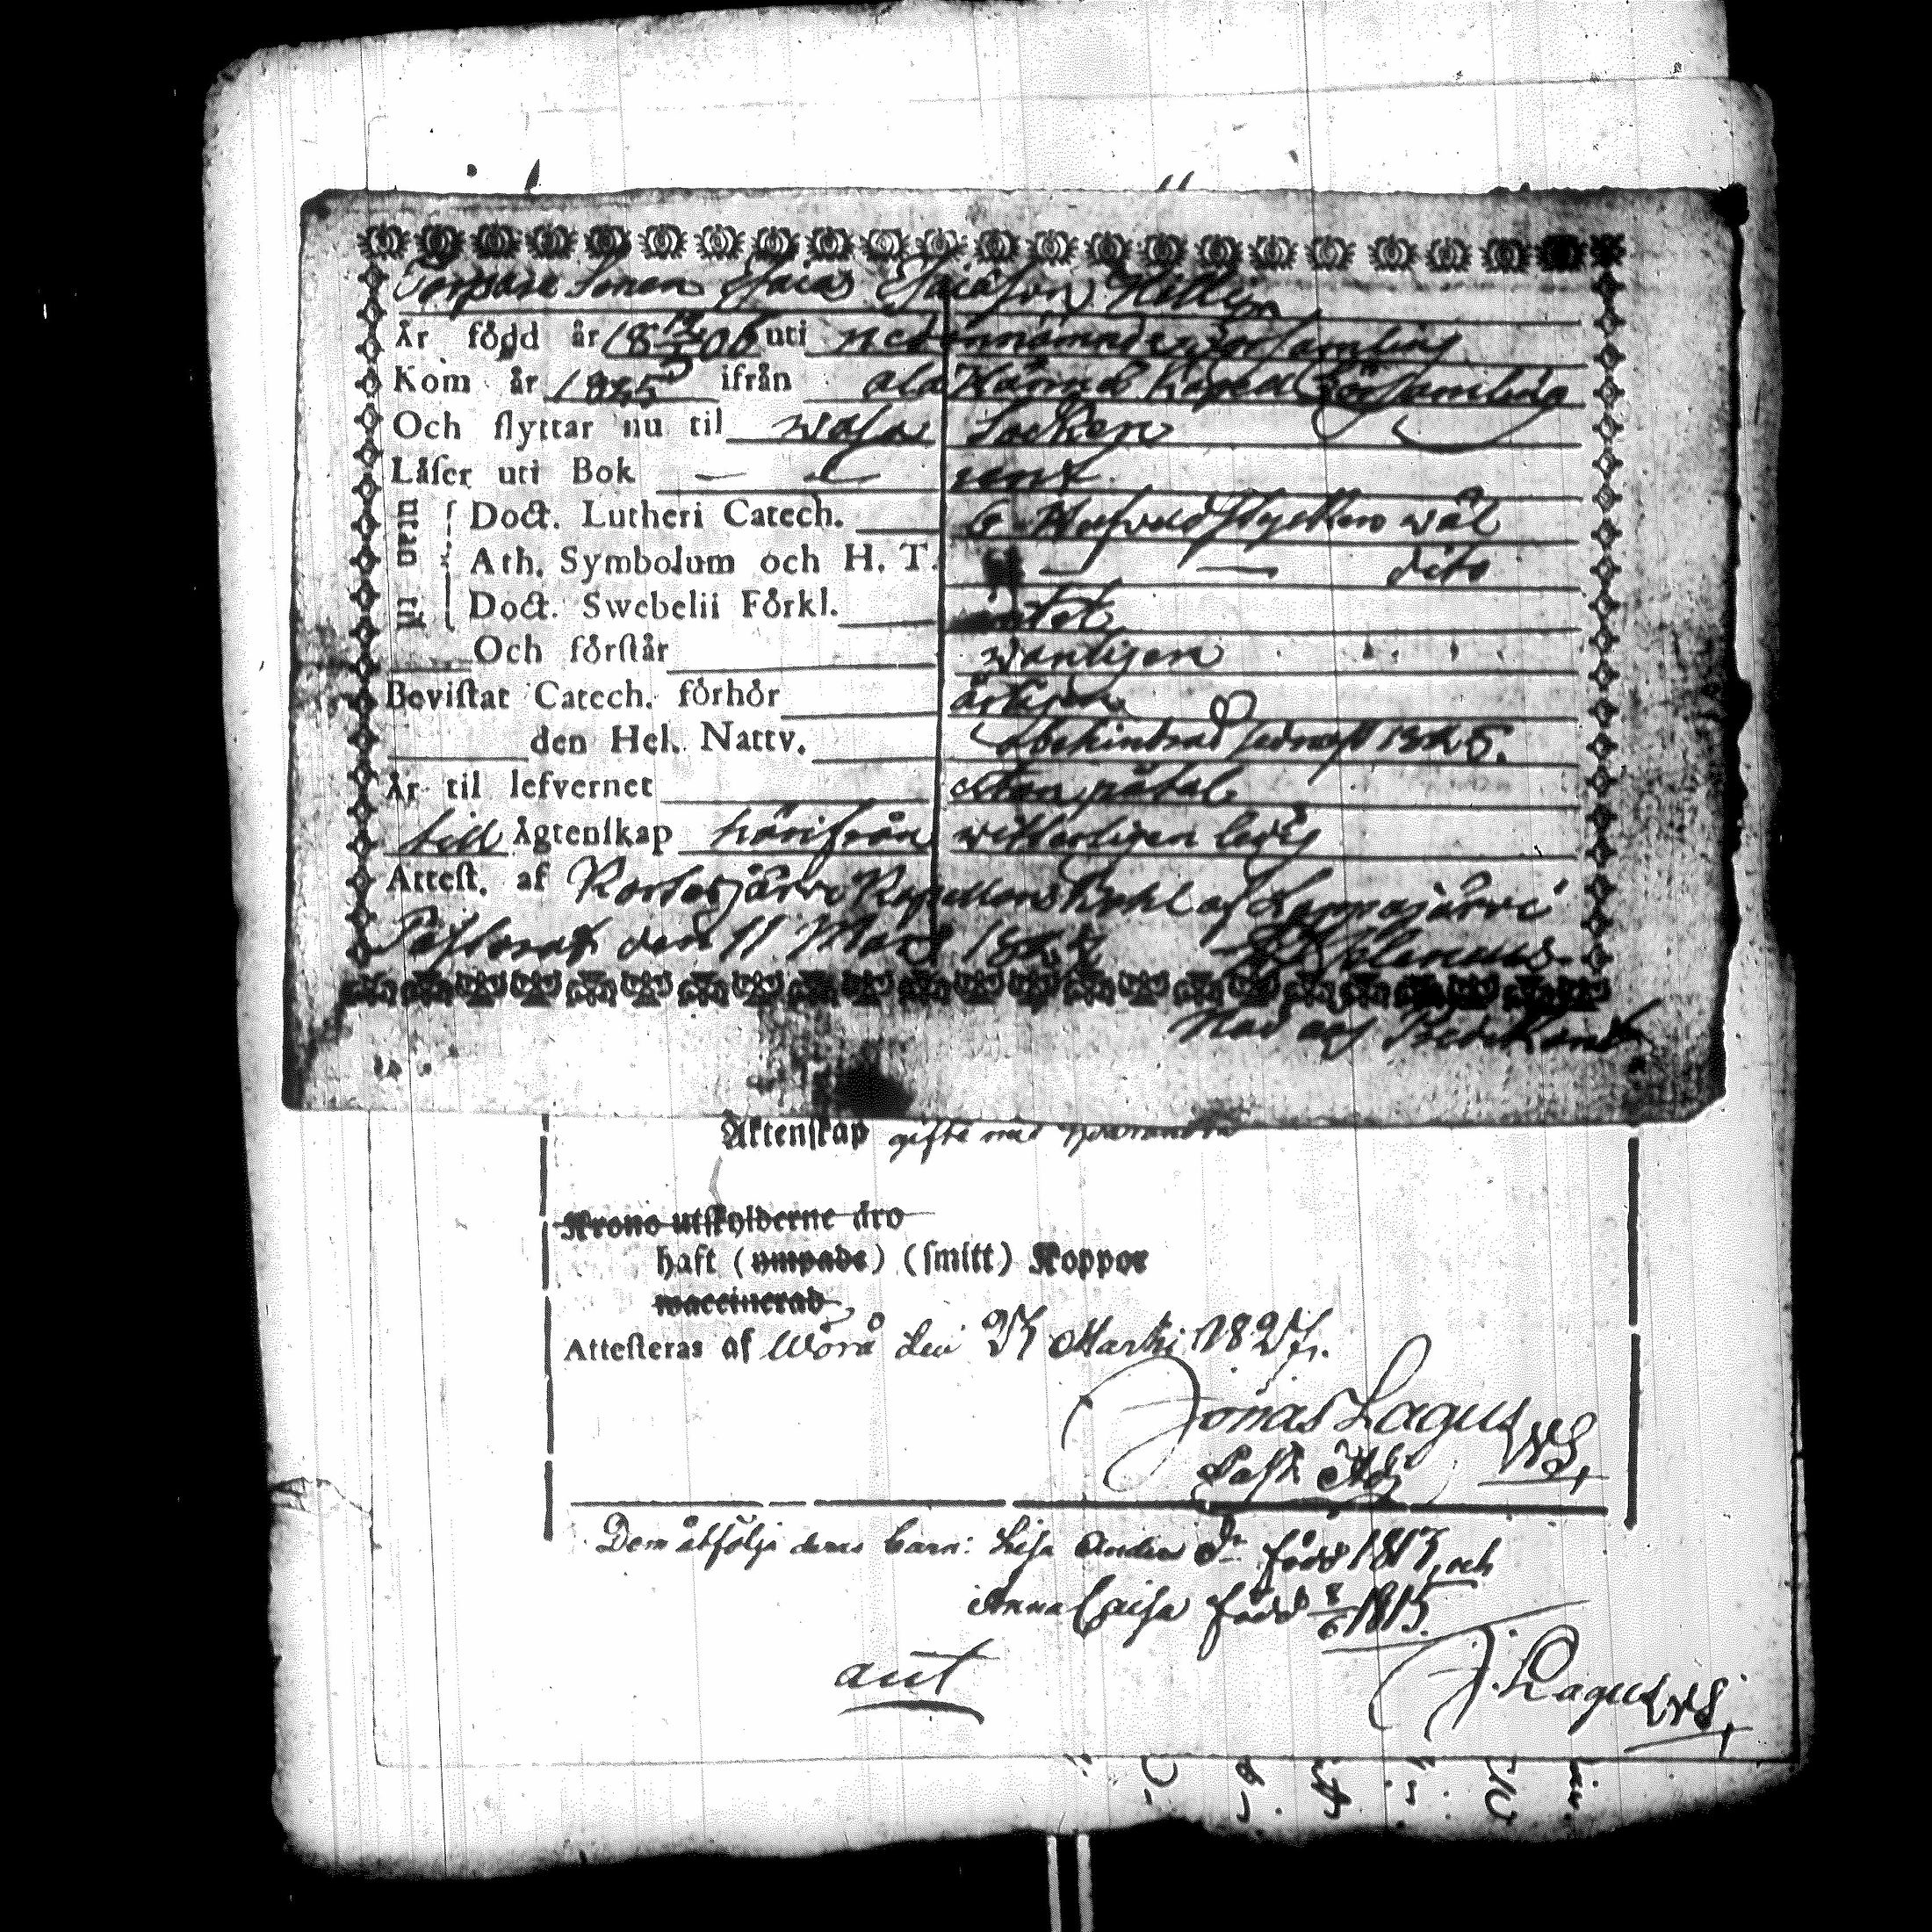 Torpare Sonen Esaias Esaiæson Hellén
Är född år 1806 uti nedannämnde Församling
Kom år 1825 ifrån Ala Härmä Kapell Församling
Och flyttar nu til Wasa Socken
Låser uti Bok rent
Doct. Lutheri Catech. 6 Hufvudstycken wäl
Ath. Symbolum och H. T. dito
Doct. Swebelii Förkl. intet
Och förstår wanligen
Bevistat Catech. förhör årligen
den Hel. Nattv. Obehindrad sednast 1825.
År til lefvernet utan påtal
till Ägtenskap härifrån wetterligen ledig
Attest. af Kortesjärvi Kapell af Lappajärvi
Pastorat den 11 Mars
Äktenskap gifte med
Krono utskylderne äro
haft (ympade) (smitt) Koppor
vaccinerad
Attesteras af Wörå den Martii
Jonas Lagus
Past. Adj.
Dem åtfölja deras barn: Lisa Anders Dr född 1813, och
Anna Caisa född 8/6 1815.
aut J. Lagus